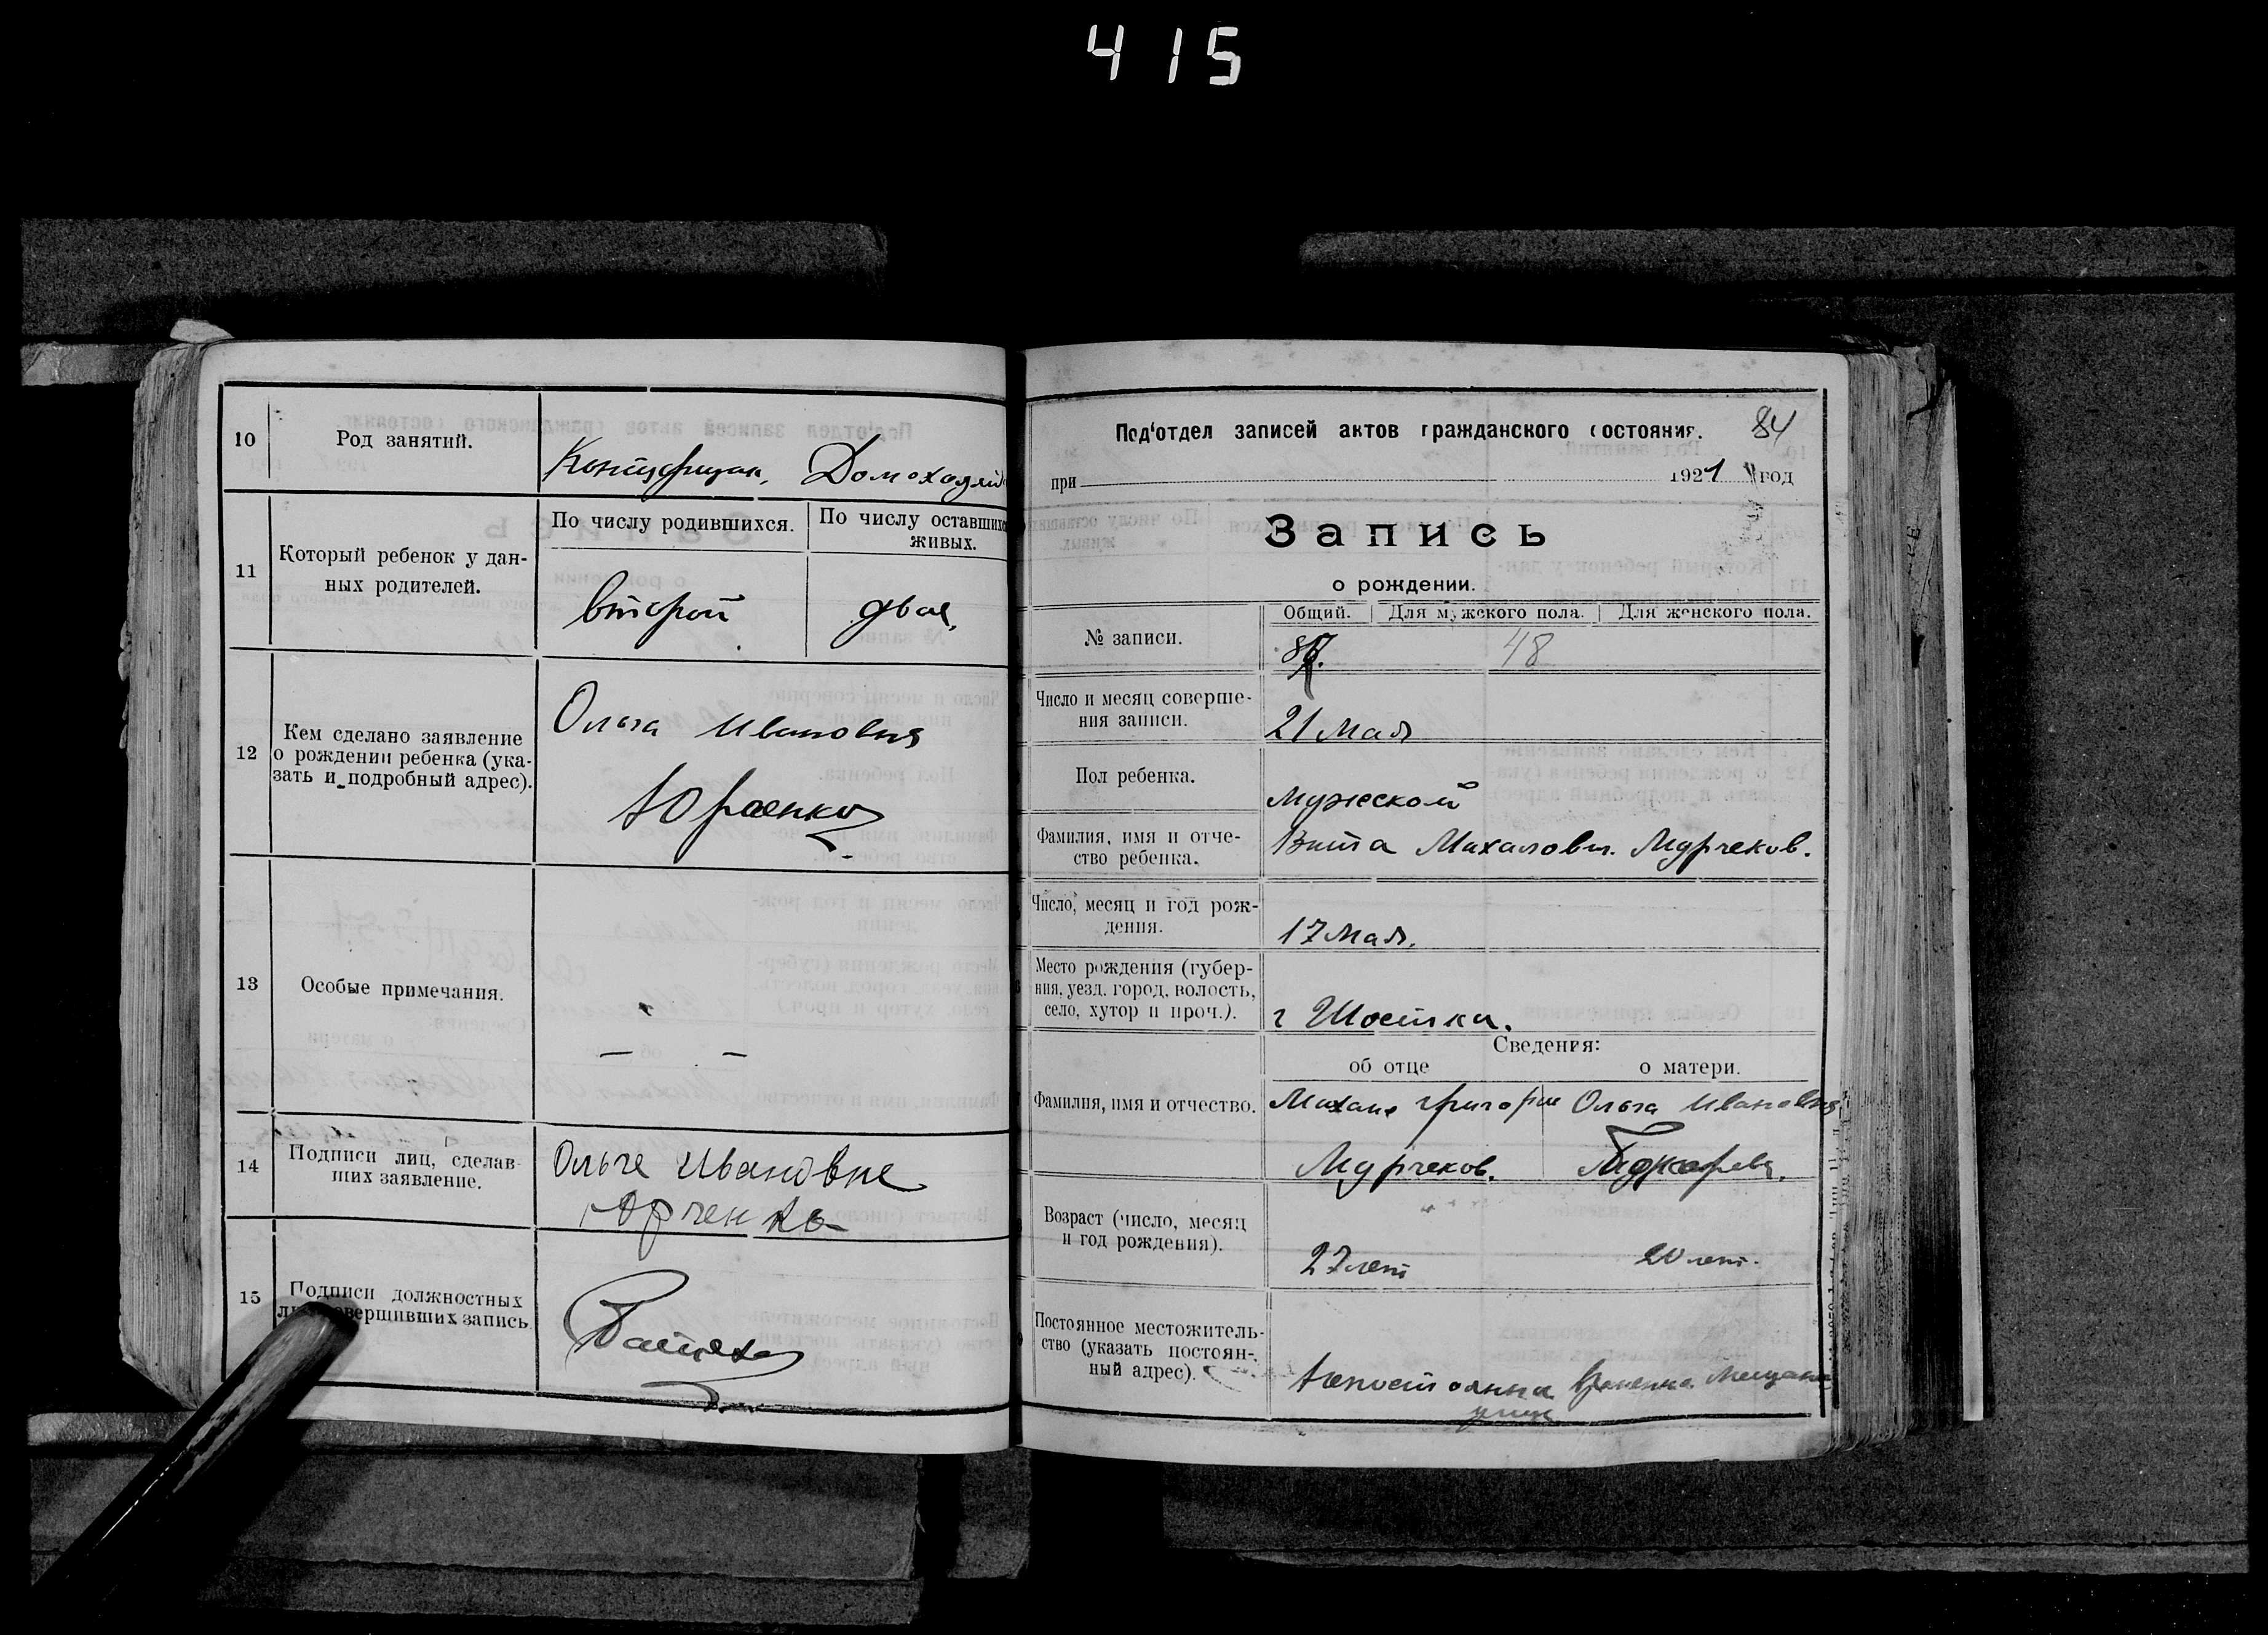 415
10
Род занятий.
Домохозяйк
11
Который ребенок у дан-
ных родителей.
По числу родившихся.
По числу оставшихс
живых.
второй
двое,
12
Кем сделано заявление
о рождении ребенка (ука-
зать и подробный адрес).
Ольга Ивановна
Юрченко
13
Особые примечания.
— —
14
Подписи лиц, сделав-
ших заявление.
Ольге Ивановне
Юрченко
15
Подписи должностных
совершивших запись.
Под'отдел записей актов гражданского состояния.
84
при
1921 год
Запись
о рождении.
№ записи.
Общий.
Для мужского пола.
Для женского пола.
48
Число и месяц соверше-
ния записи.
21 Мая
Пол ребенка.
Мужеской
Фамилия, имя и отче-
ство ребенка.
Вита Михалович. Мурчеков.
Число, месяц и год рож-
дения.
17 Мая.
Место рождения (губер-
ния, уезд, город, волость,
село, хутор и проч.).
г Шостка.
Сведения:
об отце
о матери.
Фамилия, имя и отчество.
Михаил Григорие
Мурчеков.
Ольга Ивановна
Возраст (число, месяц
и год рождения).
27 лет
20 лет.
Постоянное местожитель-
ство (указать постоян-
ный адрес).